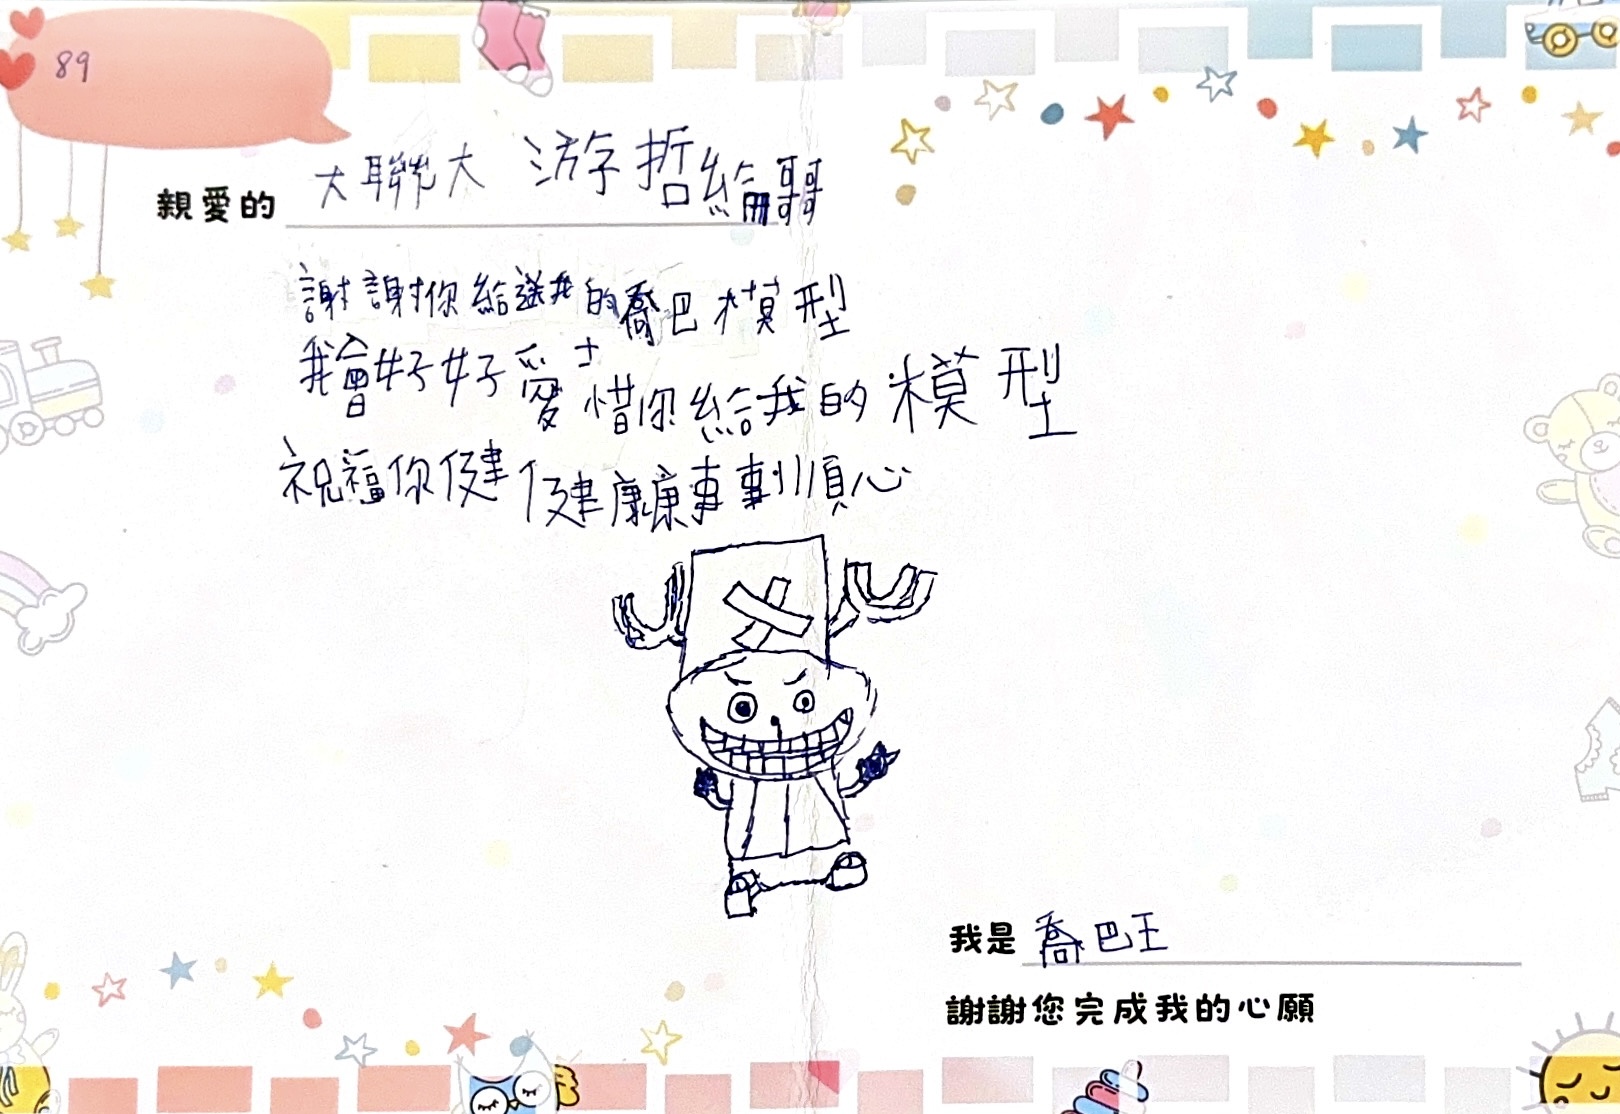 89
親愛的 大聯大 游哲綸哥哥
謝謝你給送我的喬巴模型
我會好好愛惜你給我的模型
祝福你健健康康事事順心
我是 喬巴王
謝謝您完成我的心願